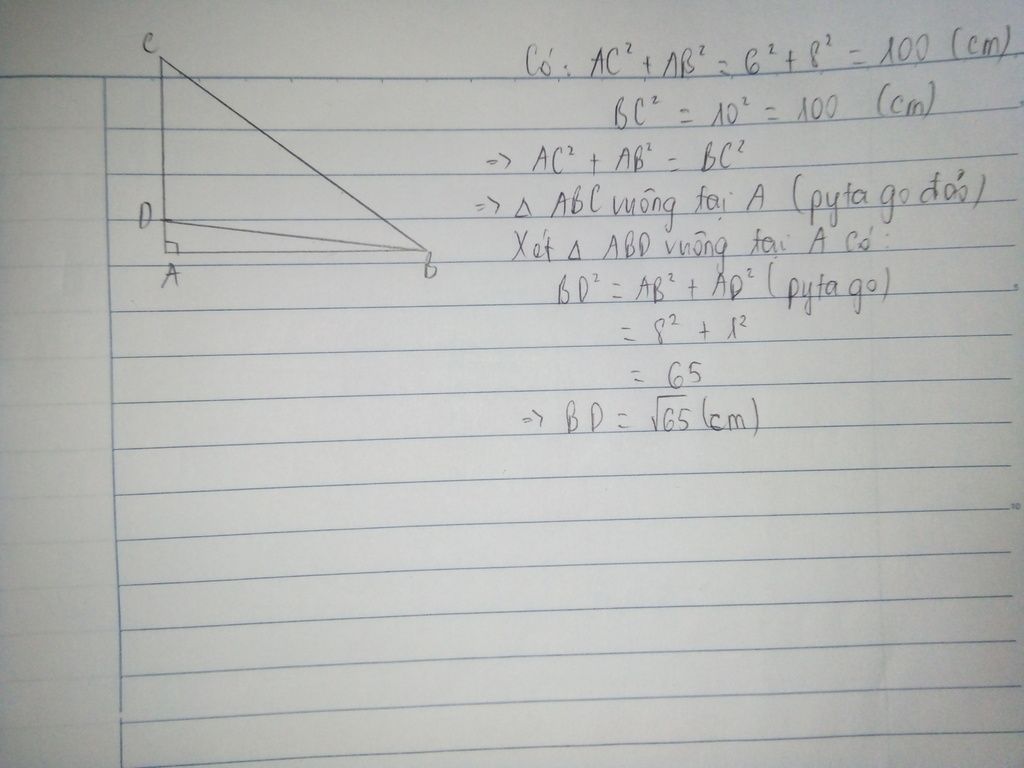 C
D
A
B
Có: AC² + AB² = 6² + 8² = 100 (cm)
BC² = 10² = 100 (cm)
=> AC² + AB² = BC²
=> Δ ABC vuông tại A (pytago đảo)
Xét Δ ABD vuông tại A có:
BD² = AB² + AD² (pytago)
= 8² + 1²
= 65
=> BD = √65 (cm)
10